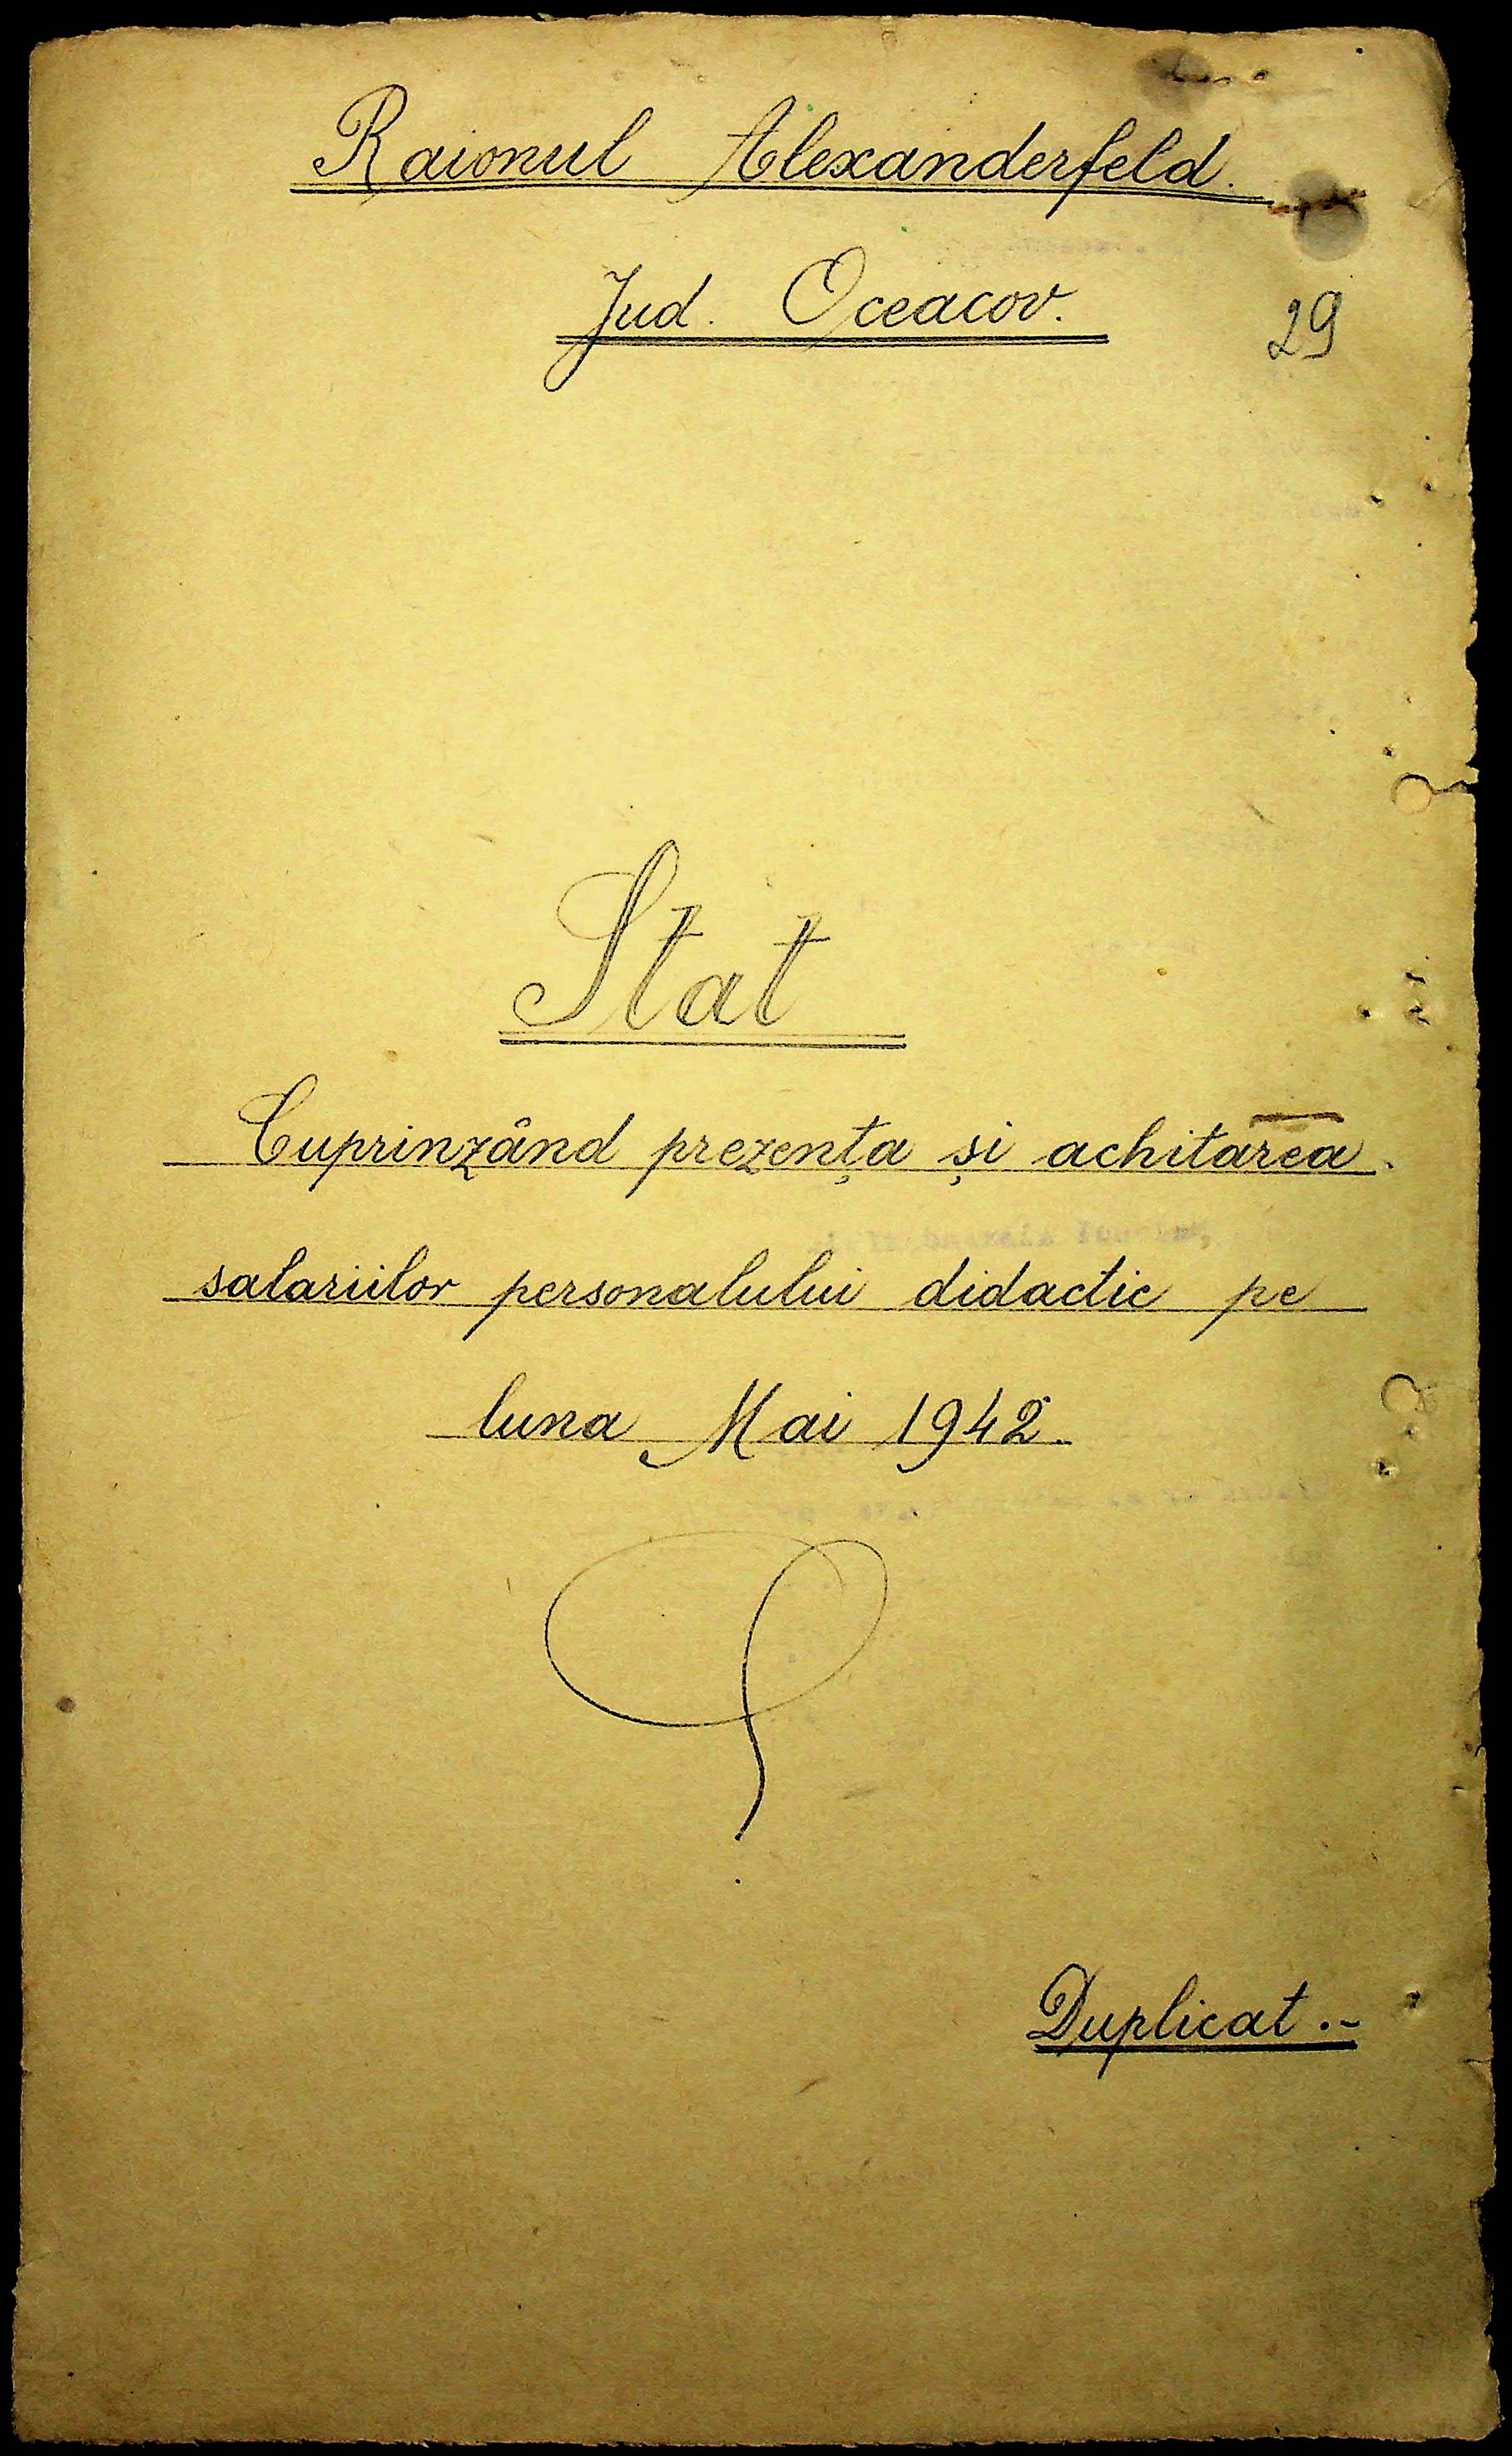 Raionul Alexanderfeld.
Jud. Oceacov.
29
Stat
Cuprinzând prezența și achitarea
salariilor personalului didactic pe
luna Mai 1942.
Duplicat.-